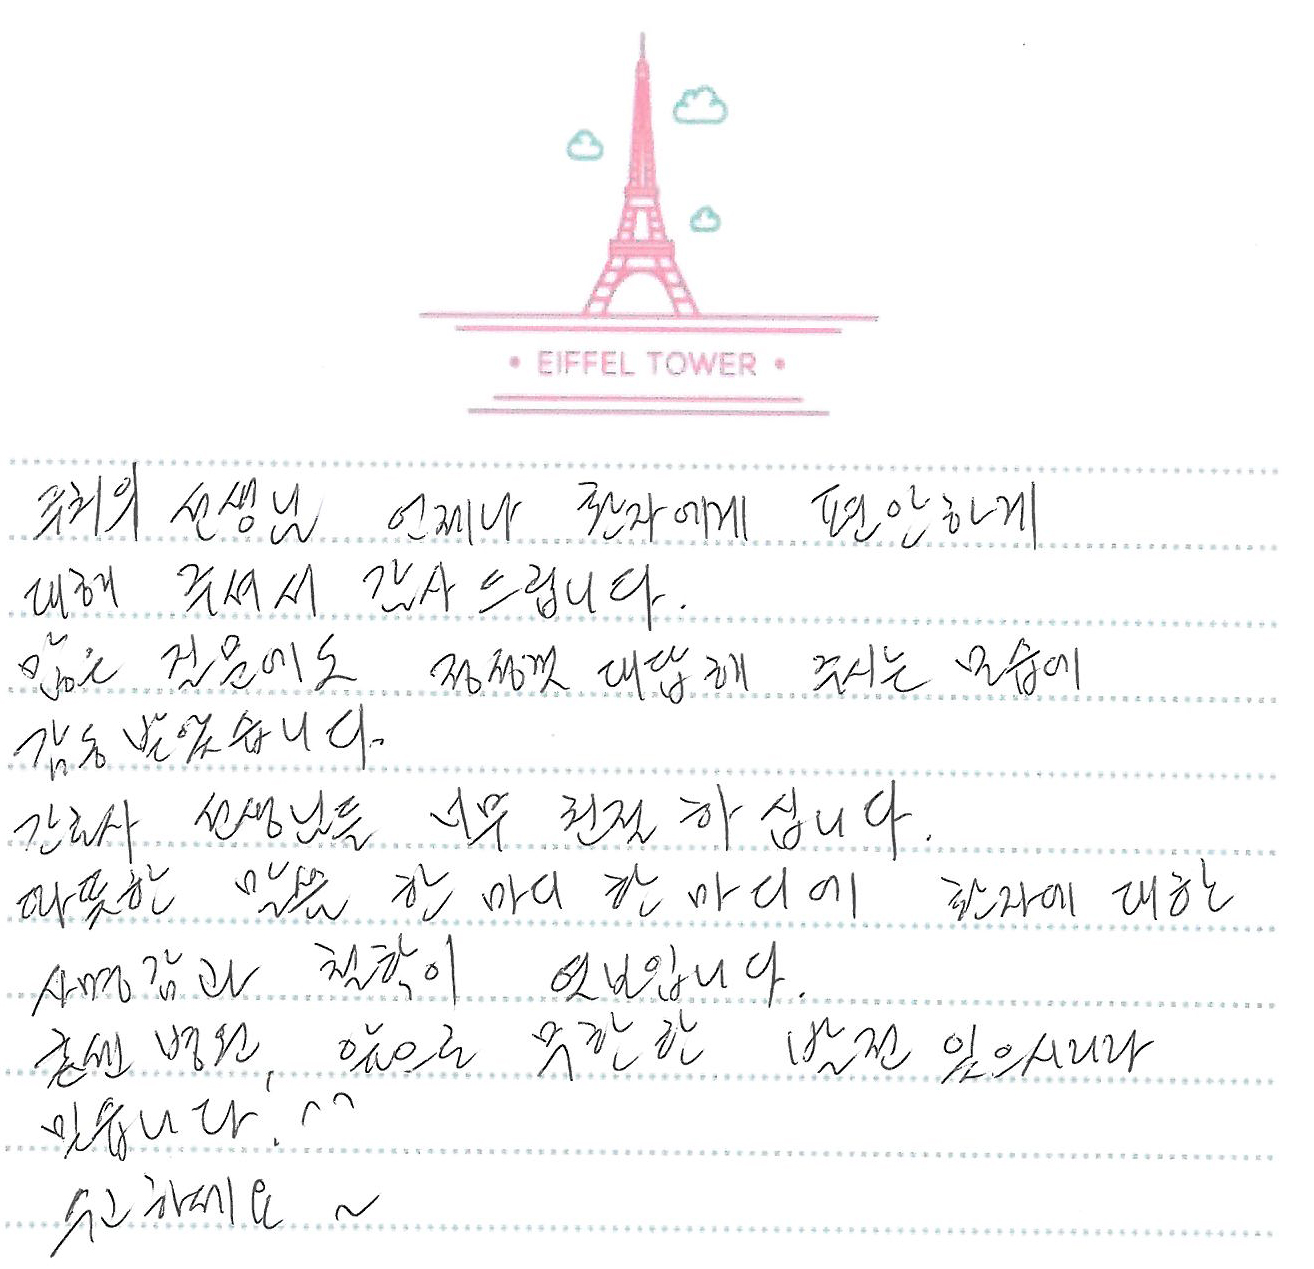 • EIFFEL TOWER •
주치의 선생님 언제나 환자에게 편안하게
대해 주셔서 감사드립니다.
많은 질문에도 정성껏 대답해 주시는 모습에
감동받았습니다.
간호사 선생님들 너무 친절하십니다.
따뜻한 말씀 한 마디 한 마디에 환자에 대한
사명감과 철학이 엿보입니다.
병원, 앞으로 무한한 발전 있으시리라
믿습니다. ^^
수고하세요 ~